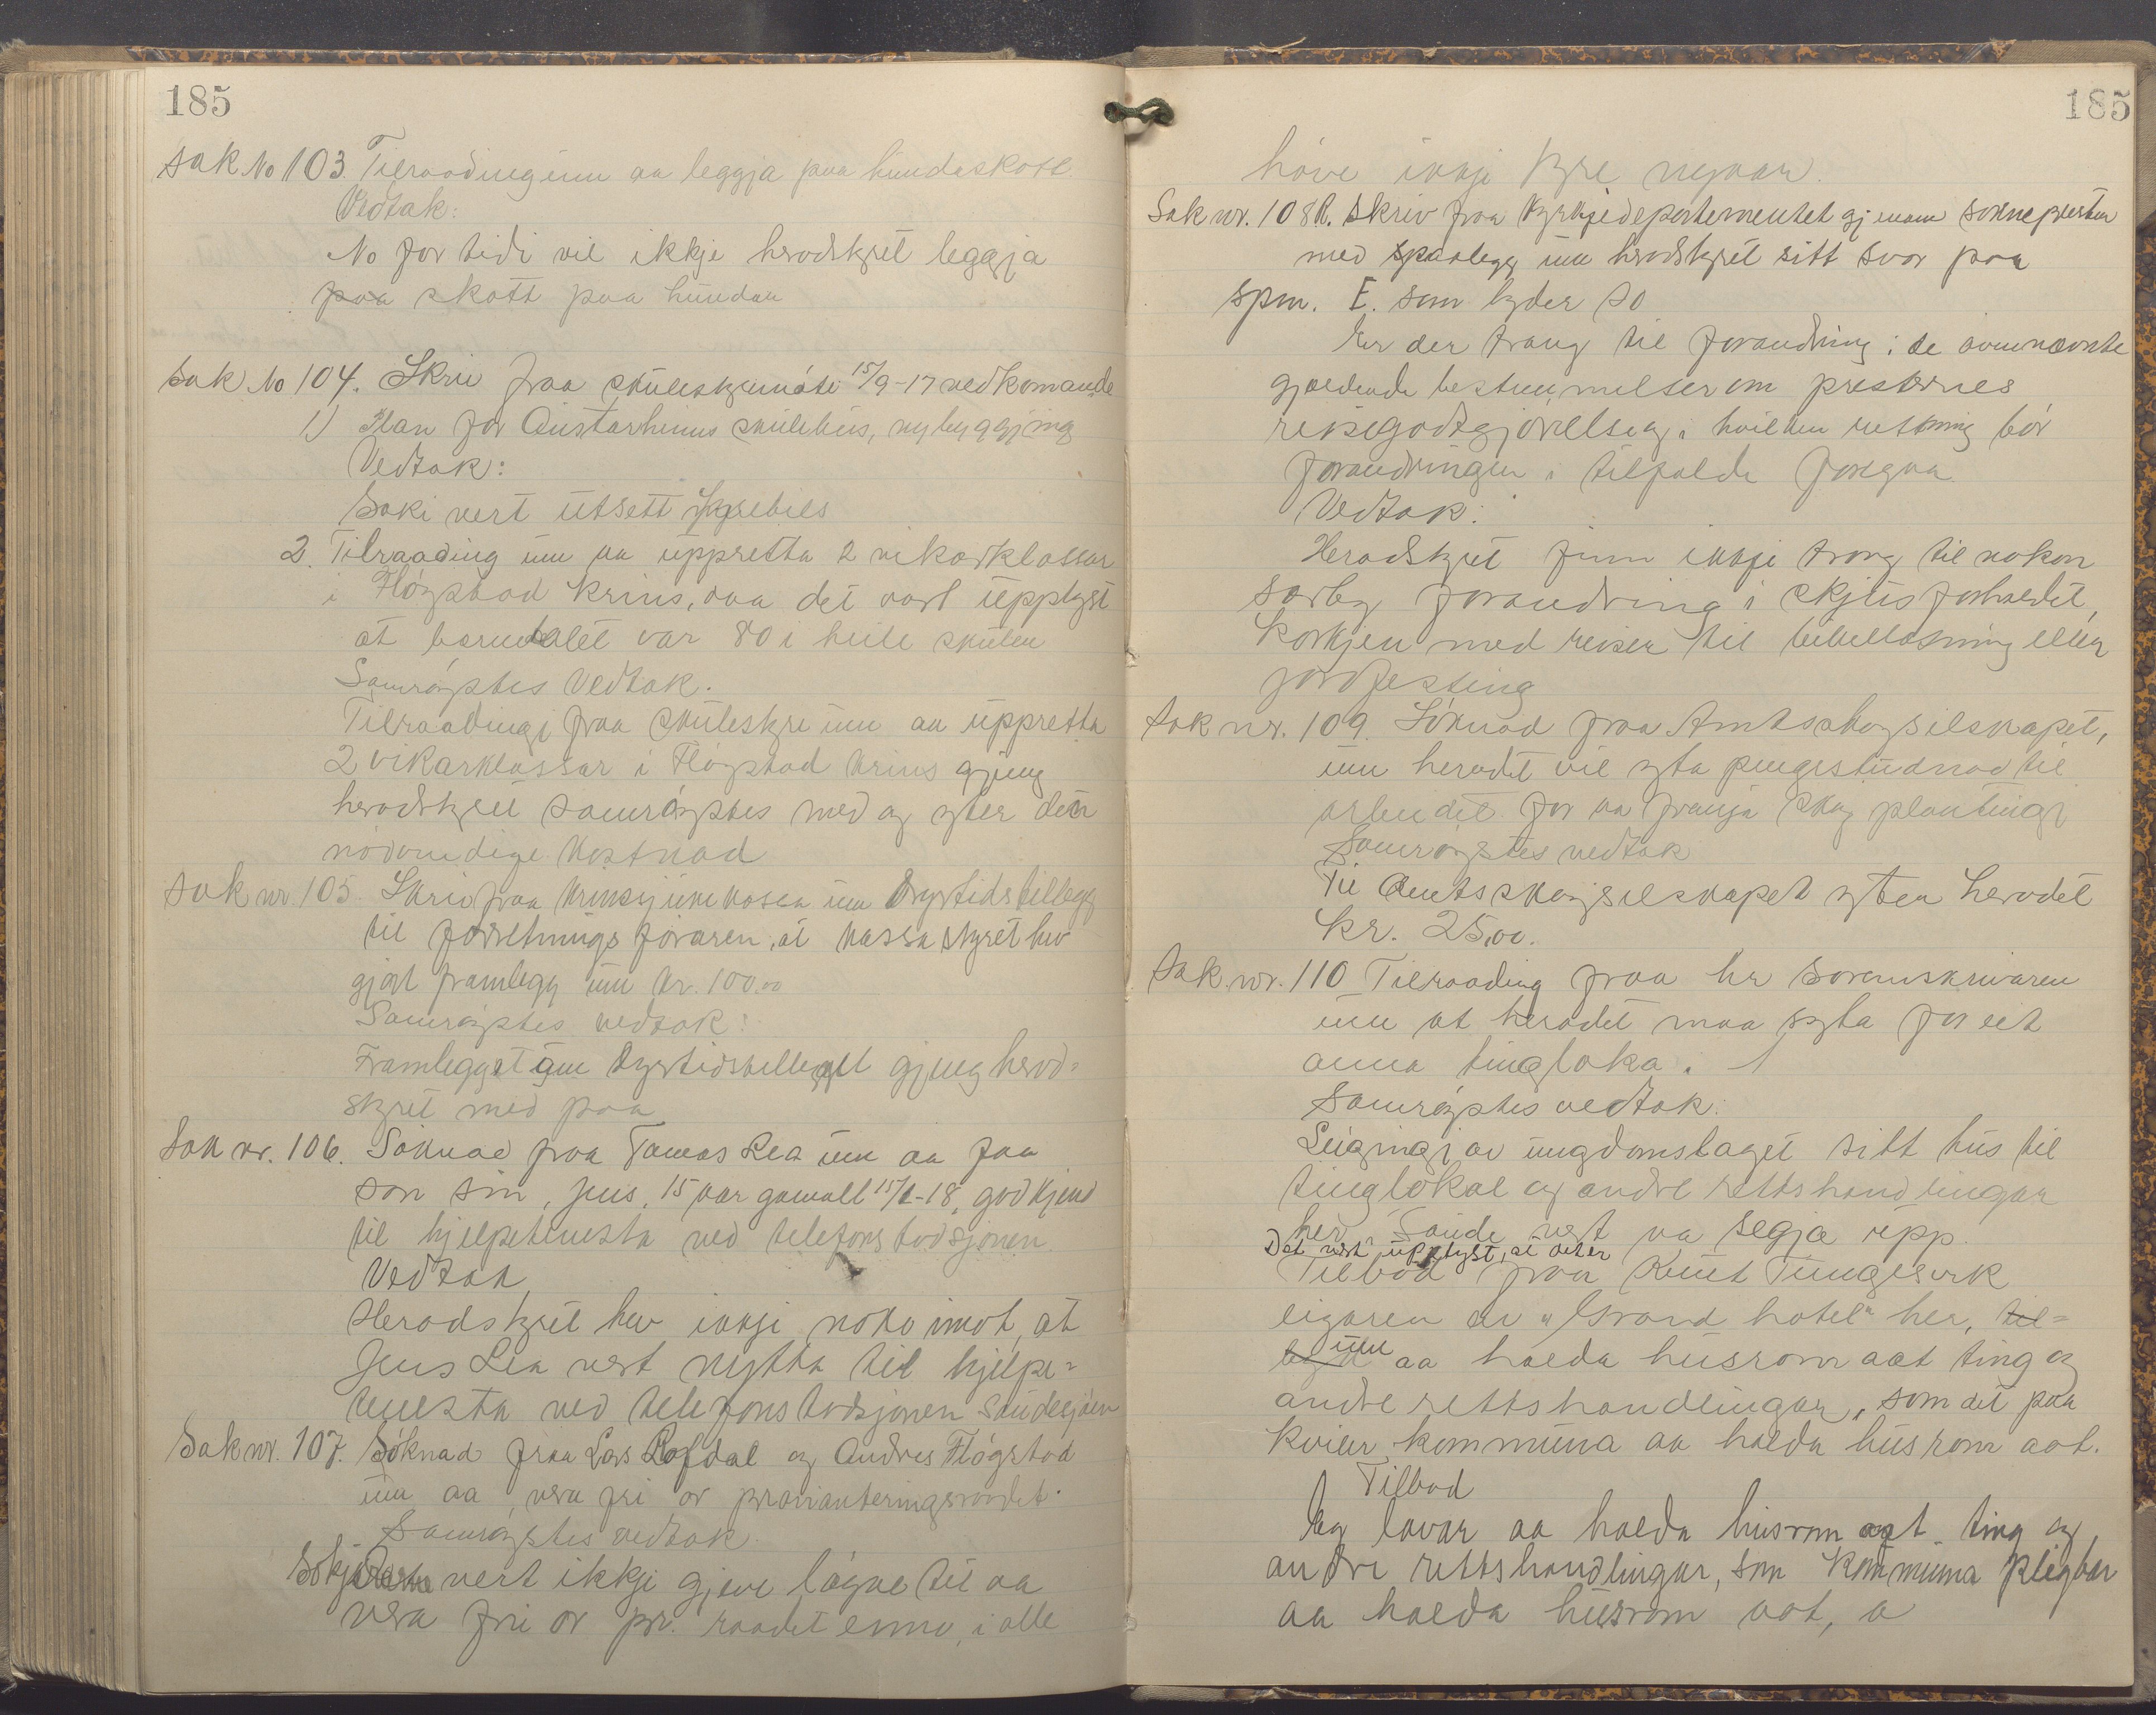 185
Sak No 103. Tilraading um aa leggja paa hundeskatt.
Vedtak:
No for tidi vil ikkje heradstyret leggja
paa skatt paa hundar
Sak No 104. Skriv fraa skulestyremöte 15/9-17 vedkomande
1) Plan for Austarheims skulehus, nybyggjing
Vedtak:
Saki vert utsett fyrebils
2. Tilraading um aa uppretta 2 vikarklassar
i Flögstad krins, daa det vart upplyst
at barnetalet var 80 i heile skulen
Samröystes Vedtak.
Tilraadingi fraa skulestyre um aa uppretta
2 vikarklassar i Flögstad krins gjeng
heradstyret samröystes med og yter den
nödvendige kostnad
Sak nr. 105. Skriv fraa krinssjukekassa um dyrtidstillegg
til forretningsföraren, at kassastyret hev
gjort framlegg um kr. 100.00
Samröystes vedtak:
Framlegget um dyrtidstillegget gjeng herad=
styret med paa
Sak nr. 106. Söknad fraa Tomas Lea um aa faa
son sin, Jens, 15 aar gamall 15/2-18, godkjend
til hjelpetenesta ved telefonstadsjonen
Vedtak
Heradstyret hev ikkje noko imot, at
Jens Lea vert nytta til hjelpe=
tenesta ved telefonstadsjonen Saudesjöen
Sak nr. 107. Söknad fraa Lars Rafdal og Andres Flögstad
um aa vera fri or provianteringsraadet.
Samröystes vedtak.
Sökjarane vert ikkje gjeve lögve til aa
vera fri or pr. raadet enno, i alle
185
höve ikkje fyre nyaar.
Sak nr. 108. Skriv fraa Kyrkjedepartementet gjenom sokneprestен
med paalegg um heradstyret sitt svar paa
spm. E. som lyder so
Er der trang til forandring i de ovennævnte
gjældende bestemmelser om presternes
reisegodtgjörelse og i hvilken retning bör
forandringen i tilfælde foregaa
Vedtak:
Heradstyret finn ikkje trong til nokon
særleg forandring i skjutsforhaldet,
korkjen med reiser til bibellæsning eller
jordfesting
Sak nr. 109. Söknad fraa Amtsskogselskapet,
um heradet vil yta pengestudnad til
arbeidet for aa fremja skogplantingi
Samröystes vedtak
Til Amtsskogselskapet yter heradet
kr. 25,00.
Sak nr. 110 Tilraading fraa hr sorenskrivaren
um at heradet maa syta for eit
anna tinglokale.
Samröystes vedtak:
Leigingi av ungdomslaget sitt hus til
tinglokal og andre rettshandlingar
her i Saude vert aa segja upp.
Det vart upplyst, at det er
Tilbod fraa Knut Tungesvik
eigaren av "Grand hotel" her, til=
um aa halda husrom aat ting og
andre rettshandlingar, som det paa
kviler kommuna aa halda husrom aat.
Tilbod
Eg lovar aa halda husrom aat ting og
andre rettshandlingar, som kommuna pligtar
aa halda husrom aat, a